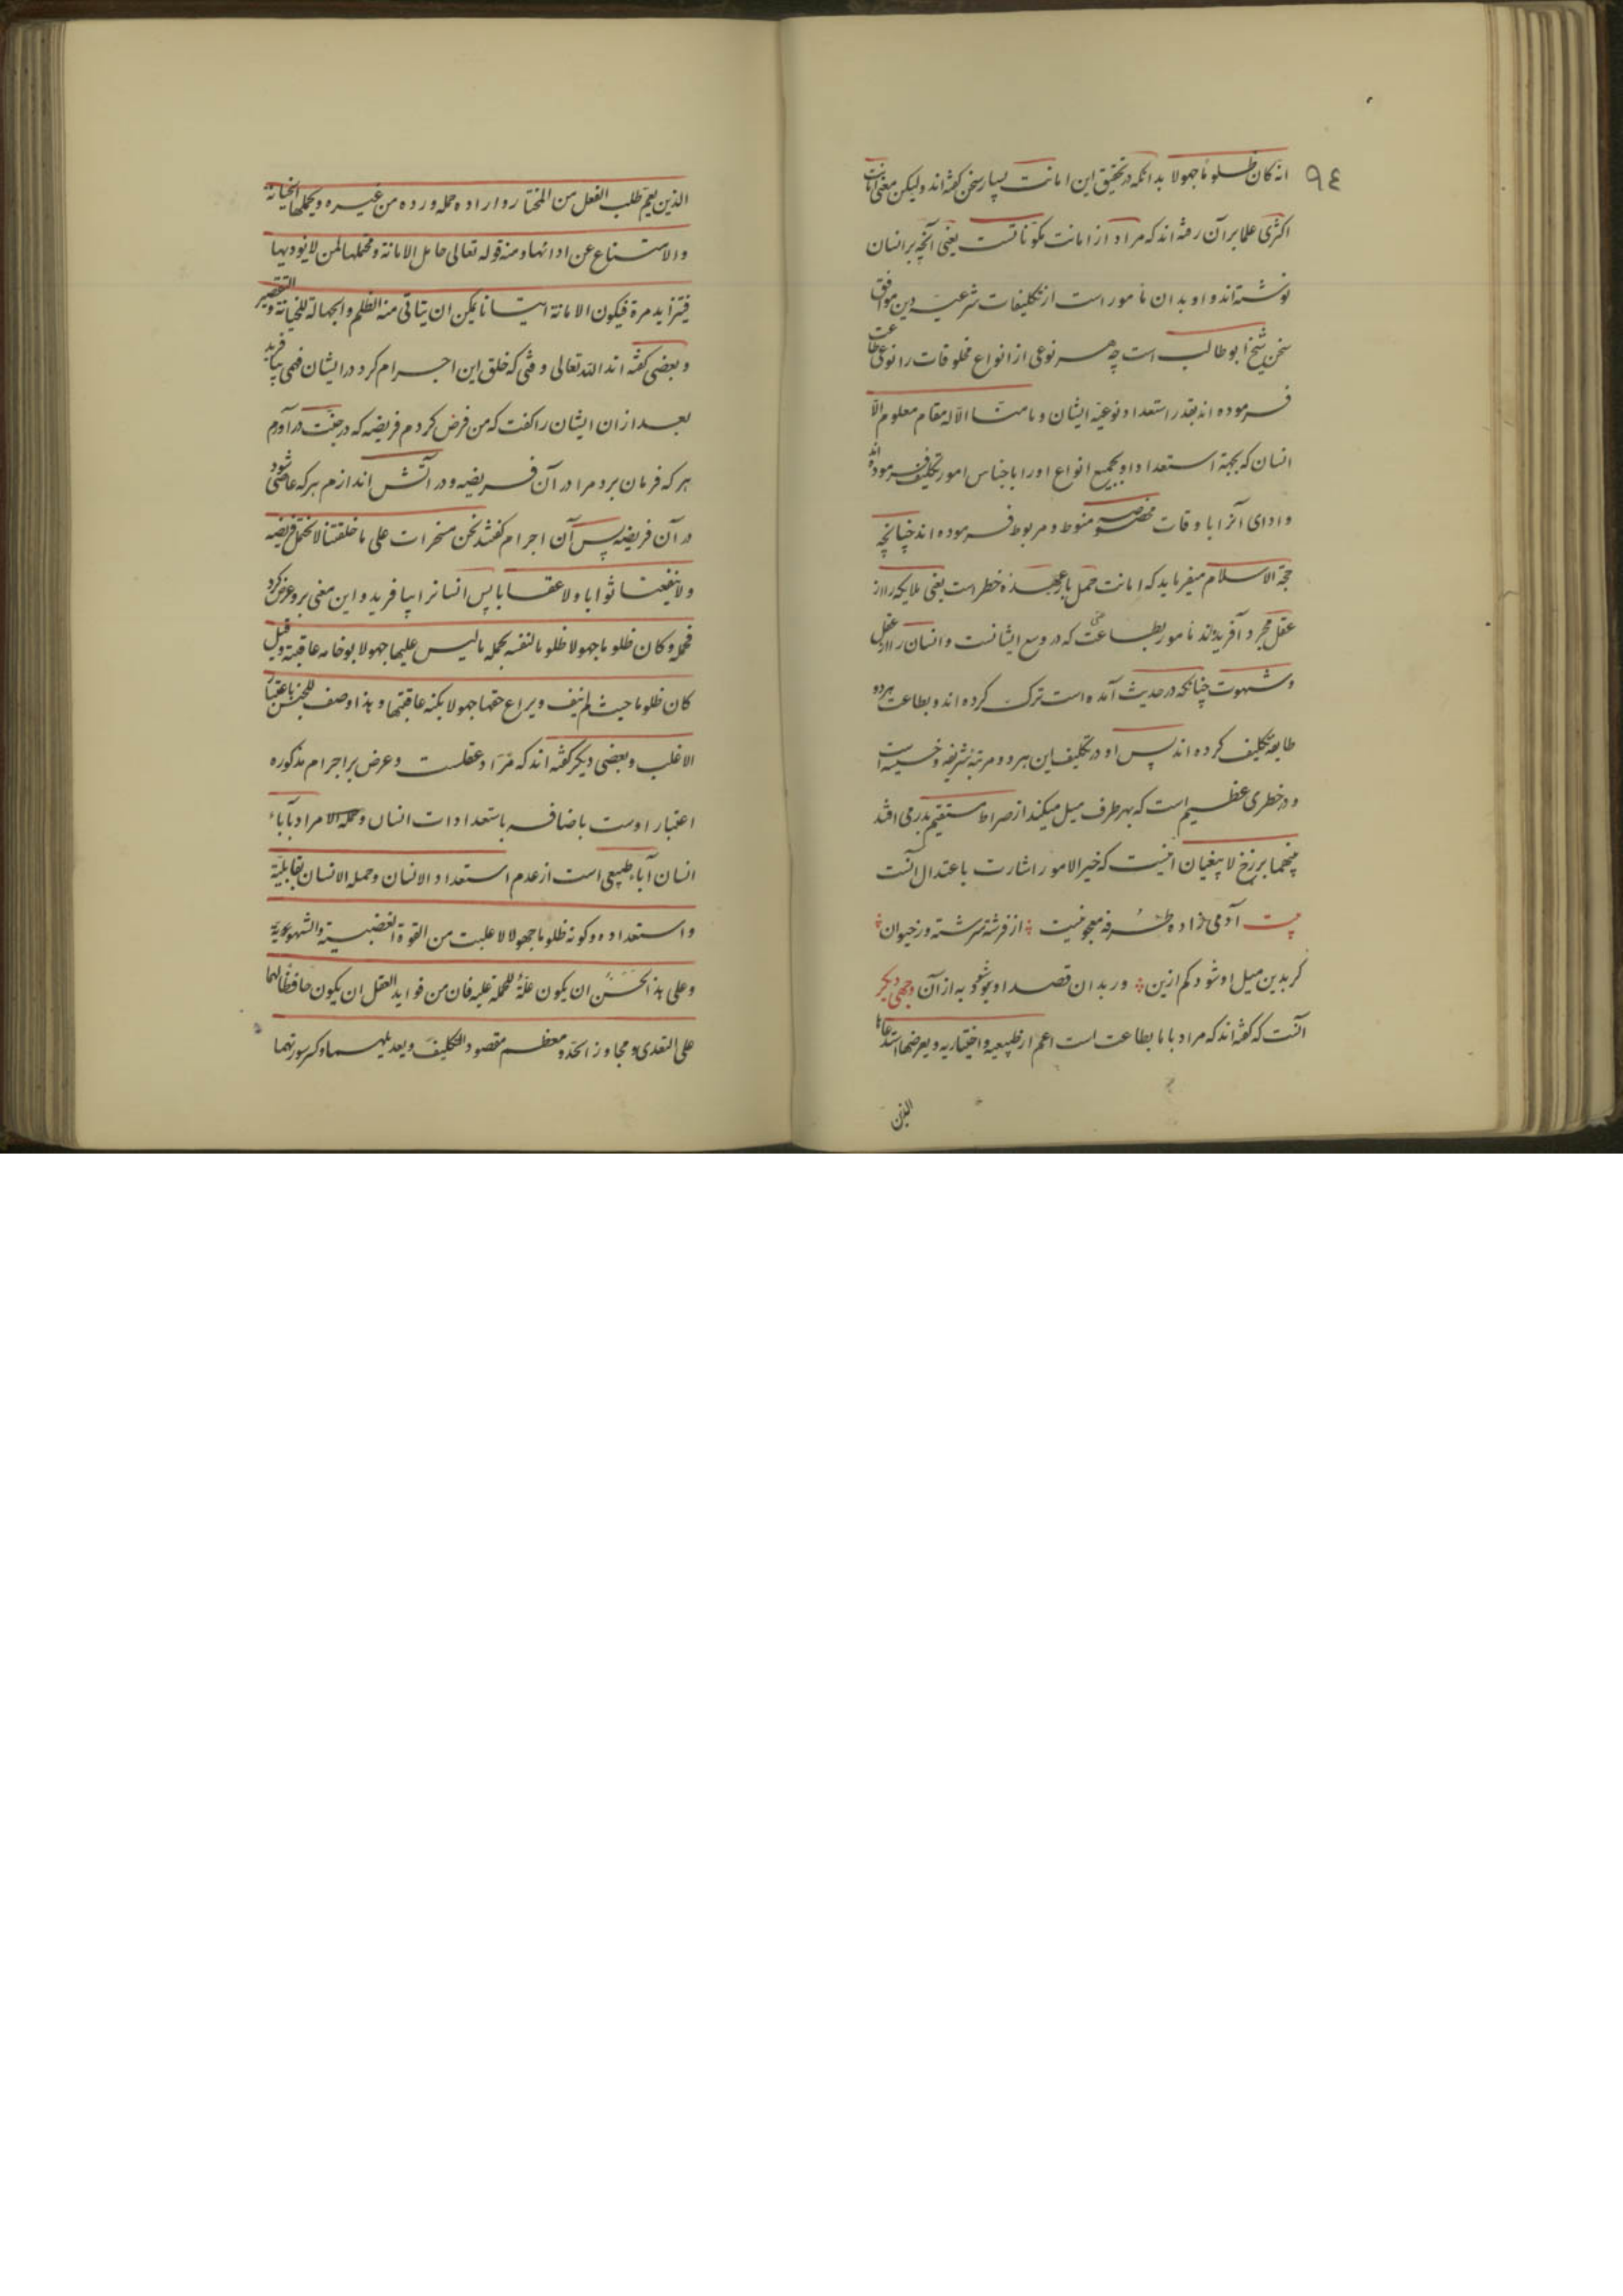 ٩٤
انه کان ظلوما جهولا بدانکه در تحقیق این امانت بسیار سخن گفته اند ولیکن معنی امانت
اکثری علما بر آن رفته اند که مراد از امانت یعنی آنچه بر انسان
نوشته اند و او بدان مأمور است از تکلیفات شرعیه دین موافق
سخن شیخ ابو طالب است چه هر نوعی از انواع مخلوقات را نوعی طاعت
فرموده اند بقدر استعداد نوعیّه ایشان و ما منّا الّا له مقام معلوم الّا
انسان که بجهة استعداد او بجمیع انواع او را باجناس امور تکلیف فرموده اند
و ادای آنرا باوقات مخصوصه منوط و مربوط فرموده اند چنانچه
حجة الاسلام میفرماید که امانت حمل بار عهده خطر است یعنی ملایکه را از
عقل مجرد آفریده اند مأمور بطاعتی که در وسع ایشانست و انسان را از عقل
و شهوت چنانکه در حدیث آمده است ترکیب کرده اند و بطاعت هر دو
طایفه تکلیف کرده اند پس او در تکلیف این هر دو مرتبه شریفه و خسیسه است
و در خطری عظیم است که بهر طرف میل میکند از صراط مستقیم بدر می افتد
بینهما برزخ لا یبغیان اینست که خیر الامور اشارت باعتدال آنست
بیت آدمی زاده طرفه معجونیست از فرشته سرشته وز حیوان
کر بدین میل او شود کم ازین ور بدان قصد او بود به از آن وجهی دیگر
آنست که گفته اند که مراد باما بطاعت است اعم از طبیعیه و اختیاریه و بعرضها استدعاها
الذین
الذین یعم طلب الفعل من المختار و اراده حمله ورده من غیره و بحملها الخیانة
والامتناع عن ادائها ومنه قوله تعالی حامل الامانة ومحتملها لمن لا یودیها
فیکون الامانة ان یتاتی منه الظلم والجهالة للخیانة والتقصیر
و بعضی گفته اند الله تعالی وقتی که خلق این اجرام کرد در ایشان فهمی بیافرید
بعد از ان ایشان را گفت که من فرض کردم فریضه که در جنّت در آورم
هر که فرمان برد مرا در آن فریضه و در آتش اندازم هر که عاصی شود
در آن فریضه پس آن اجرام گفتند نحن مسخرات علی ما خلقتنا لا نحتمل فریضة
ولا نبتغی ثوابا ولا عقابا پس انسانرا بیافرید و این معنی برو عرض کرد
فحمله وکان ظلوما جهولا ظلوما لنفسه بحمله ما لیس علیها جهولا بوخامة عاقبته وقیل
کان ظلوما حیث لم یف ویراع حقها جهولا بکنه عاقبتها وهذا وصف للجنس باعتبار
الاغلب و بعضی دیگر گفته اند که مراد عقلست و عرض بر اجرام مذکوره
اعتبار اوست باضافه باستعدادات انسان و مراد بآباء
انسان آباء طبیعی است از عدم استعداد الانسان وحمله الانسان بقابلیة
واستعداده وکونه ظلوما جهولا لا غلبت من القوة الغضبیة والشهویة
وعلی هذا یحسن ان یکون علّة للحمل علیه فان من فواید العقل ان یکون حافظا لهما
علی التعدی ومجاوز الحدّ ومعظم مقصود التکلیف وکسر سورتهما